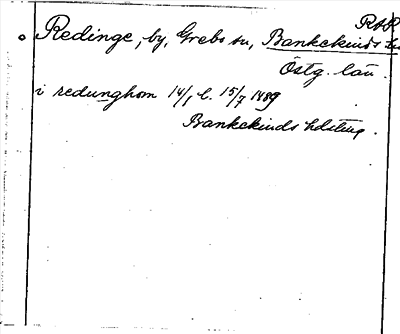 RAP
Redinge, by, Grebo sn, Bankekinds
Östg. län.
i redunghom 14/1 l. 15/7 1489
Bankekinds hdsting.